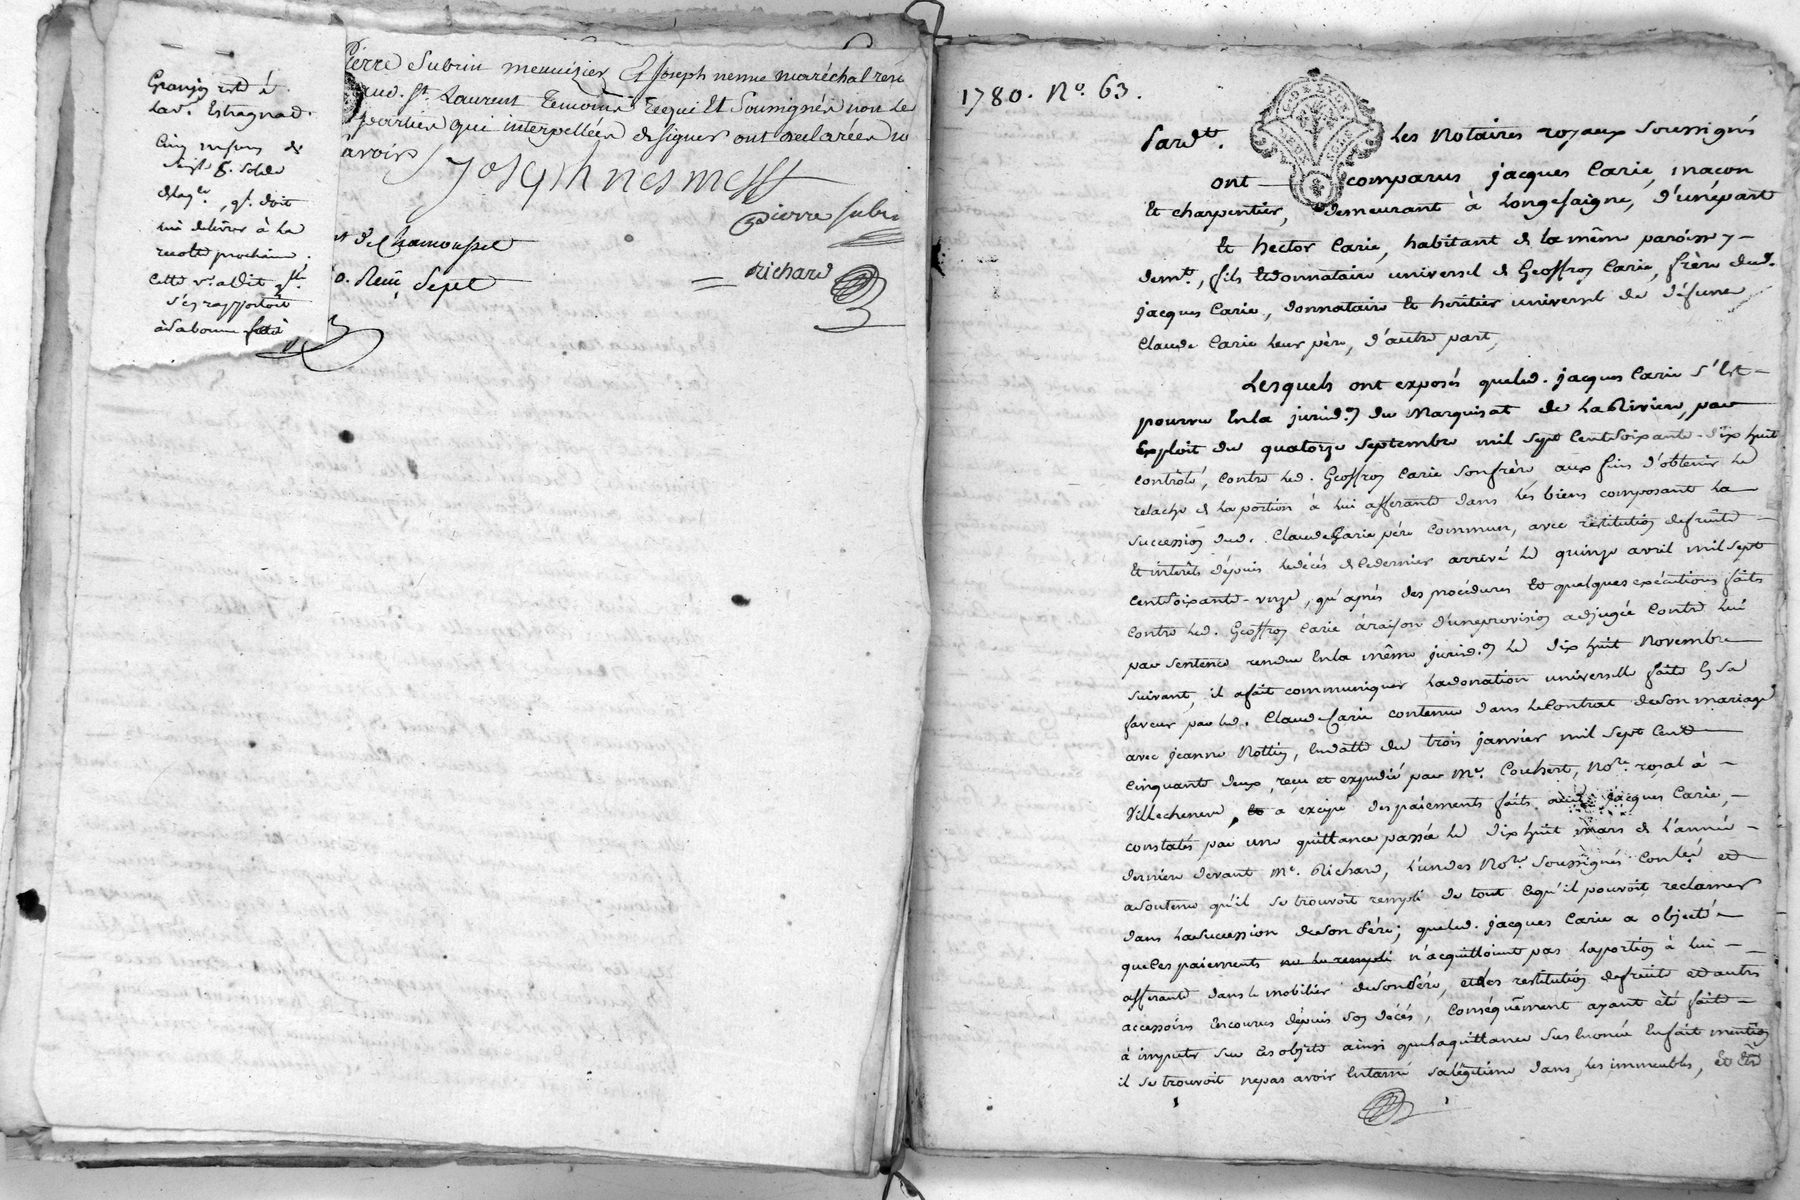 Granjon
Lad. Estragnat
Cinq mesures de
qu'il doit
lui delivrer à la
recolte prochaine
s'en rapportoit
à sa bonne foi
Pierre Subrin menuizier Et Joseph nesme maréchal
aud. St. Laurent Temoins Requis Et Soussignés non les
parties qui interpellées de signer ont declarées ne
savoir
Joseph nesme
Pierre Subrin
de Chamousset
Reçu Sept
Richard
1780. No. 63.
Pardt. Les Notaires royaux Soussignés
GON LYON
DEUX SOLS
ont comparus jacques Carie, maçon
Et charpentier, demeurant à Longesaigne, d'une part
Et hector Carie, habitant de la même paroisse y
demt., fils Et donnataire universel de Geoffroy Carie, frère dud.
jacques Carie, donnataire Et heritier universel de défunt
Claude Carie leur père, d'autre part,
Lesquels ont exposés que led. jacques Carie s'Est
pourvu En la jurid.on du Marquisat de La Riviere, par
Exploit du quatorze septembre mil sept Cent Soixante-dix huit
controlé, contre led. Geoffroy Carie son frère aux fins d'obtenir le
relache de la portion à lui afferante dans les biens composant la
succession dud. Claude Carie père Commun, avec restitution de fruits
Et interêts dépuis le décés de Ce dernier arrivé le quinze avril mil sept
Cent Soixante-onze, qu'après des procédures Et quelques exécutions faits
contre led. Geoffroy Carie à raison d'une provision adjugée Contre lui
par sentence rendue En la même jurid.on le dix huit Novembre
suivant, il a fait communiquer la donation universelle faite En sa
faveur par led. Claude Carie contenue dans le Contrat de son mariage
avec jeanne Rottin, En datte du trois janvier mil sept Cent
cinquante deux, reçu et expédié par Me. Couhert, Nore. royal à
Villecheneve, et a excipé des paiements faits aud. Jacques Carie,
constatés par une quittance passée le dix huit mars de l'année
derniere devant Me. Richard, l'un des Nores. soussignés Conlé et
a soutenu qu'il se trouvoit rempli de tout ce qu'il pouvoit reclamer
dans la succession de son Père; que led. jacques Carie a objecté
que Ces paiements ne le rempli n'acquittoient pas la portion à lui
afferante dans le mobilier de son Père, et des restitution de fruit et autres
accessoires Encourus dépuis son décés, Conséquemment ayant été faits
à imputer sur Ces objets ainsi que la quittance sus Enoncée En fait mention
il se trouvoit ne pas avoir Entamé sa légitime dans les immeubles, et Etre